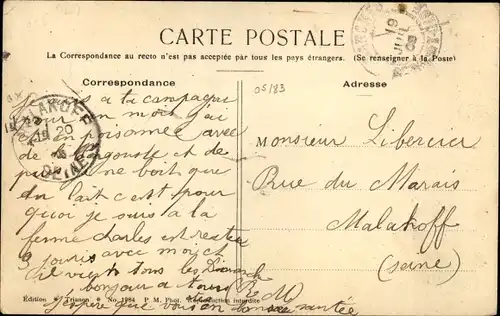 CARTE POSTALE
La Correspondance au recto n'est pas acceptée par tous les pays étrangers. (Se renseigner à la Poste)
Correspondance
Adresse
05/83
MALAKOFF
20
SEINE
19
JUIL
je suis a la campagne
pour un mois j'ai
été en poisonnée avec
de la langouste et de
puis je ne boit que
du lait c'est pour
quoi je suis a la
ferme charles est restée
3 jours avec moi
il vient tous les Dimanch
bonjour a tous
j'espère que vous en bonne santée
Monsieur Libercier
Rue du Marais
Malakoff
(Seine)
Édition Trianon No. 1984 P. M. Phot. Reproduction interdite